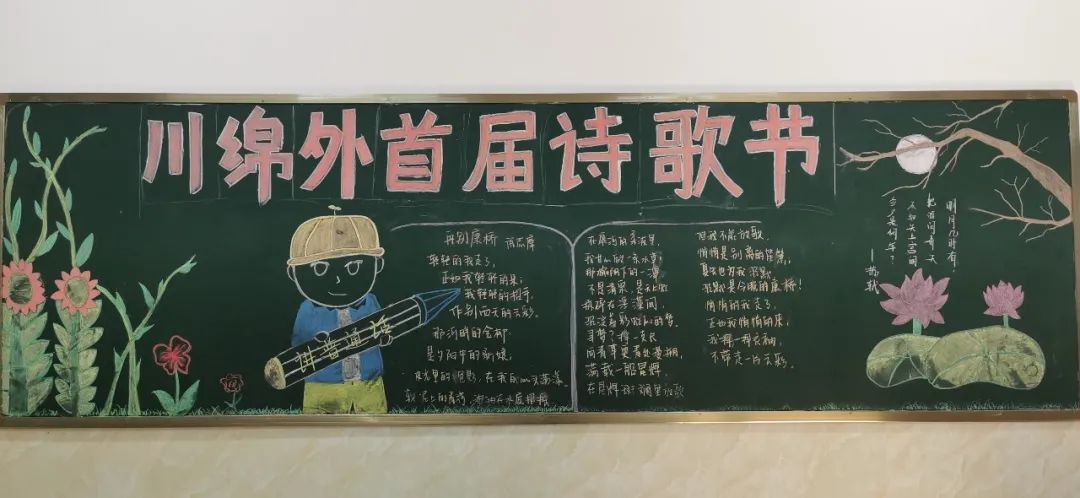 川绵外首届诗歌节
再别康桥 徐志摩
轻轻的我走了，
正如我轻轻的来；
我轻轻的招手，
作别西天的云彩。
那河畔的金柳
是夕阳中的新娘，
波光里的艳影，在我的心头荡漾
软泥上的青荇，油油的在水底招摇
在康河的柔波里，
我甘心做一条水草！
那榆荫下的一潭
不是清泉，是天上虹
揉碎在浮藻间，
沉淀着彩虹似的梦。
寻梦？撑一支长篙
向青草更青处漫溯，
满载一船星辉，
在星辉斑斓里放歌
但我不能放歌，
悄悄是别离的笙箫，
夏虫也为我沉默，
沉默是今晚的康桥！
悄悄的我走了，
正如我悄悄的来；
我挥一挥衣袖，
不带走一片云彩。
讲普通话
明月几时有？
把酒问青天
不知天上宫阙
今夕是何年？
——苏轼